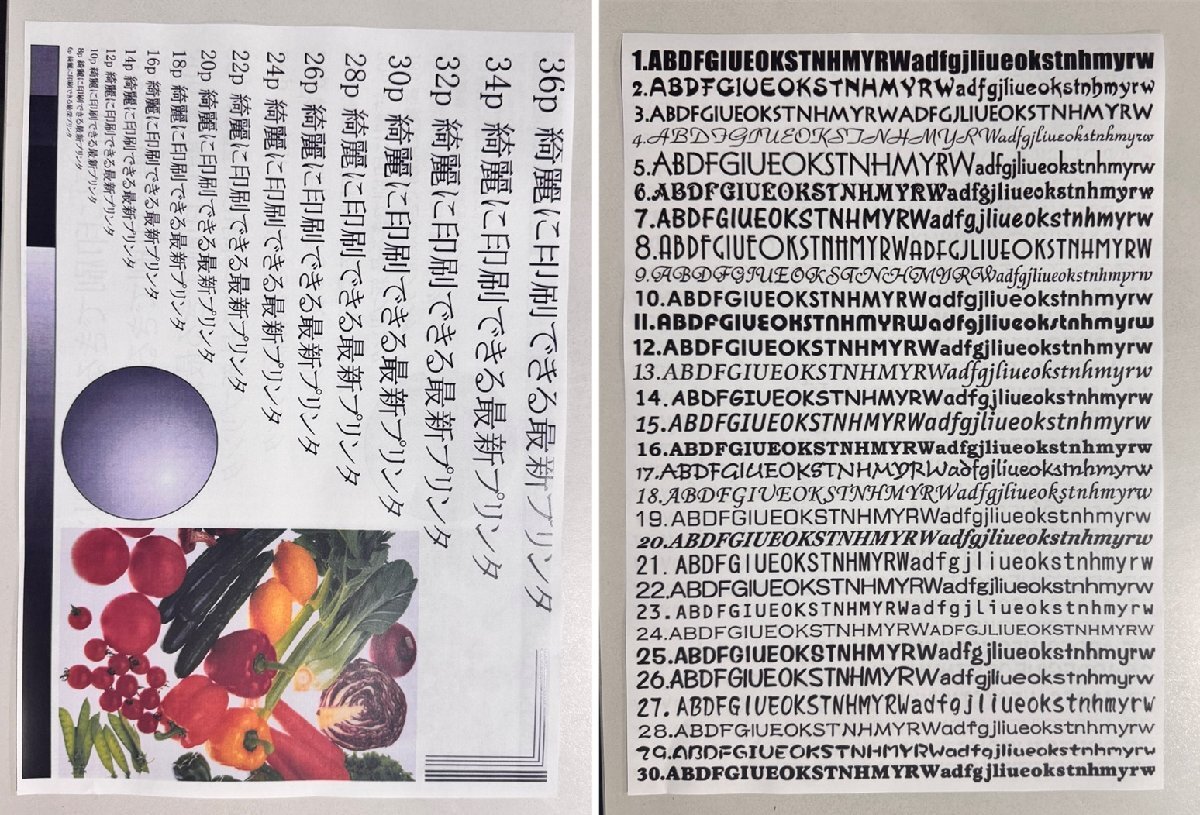 36p 綺麗に印刷できる最新プリンタ
34p 綺麗に印刷できる最新プリンタ
32p 綺麗に印刷できる最新プリンタ
30p 綺麗に印刷できる最新プリンタ
28p 綺麗に印刷できる最新プリンタ
26p 綺麗に印刷できる最新プリンタ
24p 綺麗に印刷できる最新プリンタ
22p 綺麗に印刷できる最新プリンタ
20p 綺麗に印刷できる最新プリンタ
18p 綺麗に印刷できる最新プリンタ
16p 綺麗に印刷できる最新プリンタ
14p 綺麗に印刷できる最新プリンタ
12p 綺麗に印刷できる最新プリンタ
10p 綺麗に印刷できる最新プリンタ
8p 綺麗に印刷できる最新プリンタ
6p 綺麗に印刷できる最新プリンタ
1.ABDFGIUEOKSTNHMYRWadfgjliueokstnhmyrw
2.ABDFGIUEOKSTNHMYRWadfgjliueokstnhmyrw
3.ABDFGIUEOKSTNHMYRWADFGJLIUEOKSTNHMYRW
4.ABDFGIUEOKSTNHMYRWadfgjliueokstnhmyrw
5.ABDFGIUEOKSTNHMYRWadfgjliueokstnhmyrw
6.ABDFGIUEOKSTNHMYRWadfgjliueokstnhmyrw
7.ABDFGIUEOKSTNHMYRWadfgjliueokstnhmyrw
8.ABDFGIUEOKSTNHMYRWADFGJLIUEOKSTNHMYRW
9.ABDFGIUEOKSTNHMYRWadfgjliueokstnhmyrw
10.ABDFGIUEOKSTNHMYRWadfgjliueokstnhmyrw
11.ABDFGIUEOKSTNHMYRWadfgjliueokstnhmyrw
12.ABDFGIUEOKSTNHMYRWadfgjliueokstnhmyrw
13.ABDFGIUEOKSTNHMYRWadfgjliueokstnhmyrw
14.ABDFGIUEOKSTNHMYRWadfgjliueokstnhmyrw
15.ABDFGIUEOKSTNHMYRWadfgjliueokstnhmyrw
16.ABDFGIUEOKSTNHMYRWadfgjliueokstnhmyrw
17.ABDFGIUEOKSTNHMYRWadfgjliueokstnhmyrw
18.ABDFGIUEOKSTNHMYRWadfgjliueokstnhmyrw
19.ABDFGIUEOKSTNHMYRWadfgjliueokstnhmyrw
20.ABDFGIUEOKSTNHMYRWadfgjliueokstnhmyrw
21.ABDFGIUEOKSTNHMYRWadfgjliueokstnhmyrw
22.ABDFGIUEOKSTNHMYRWadfgjliueokstnhmyrw
23.ABDFGIUEOKSTNHMYRWadfgjliueokstnhmyrw
24.ABDFGIUEOKSTNHMYRWADFGJLIUEOKSTNHMYRW
25.ABDFGIUEOKSTNHMYRWadfgjliueokstnhmyrw
26.ABDFGIUEOKSTNHMYRWadfgjliueokstnhmyrw
27.ABDFGIUEOKSTNHMYRWadfgjliueokstnhmyrw
28.ABDFGIUEOKSTNHMYRWadfgjliueokstnhmyrw
29.ABDFGIUEOKSTNHMYRWadfgjliueokstnhmyrw
30.ABDFGIUEOKSTNHMYRWadfgjliueokstnhmyrw